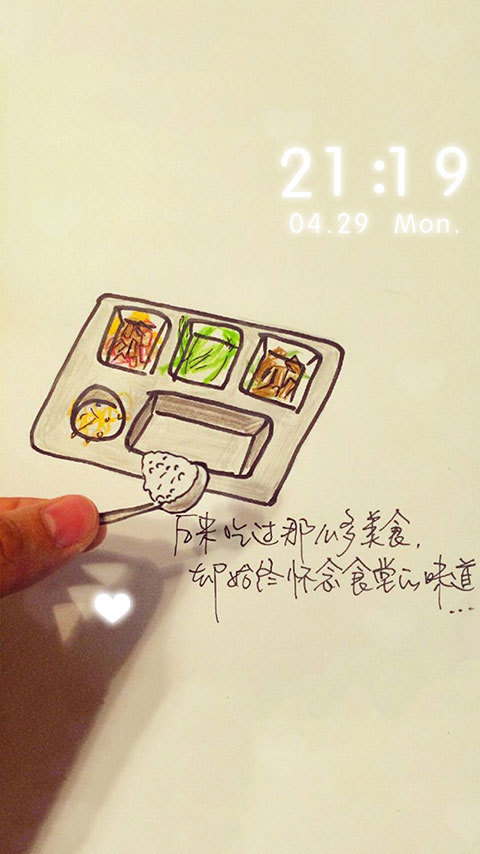 21:19
04.29 Mon.
后来吃过那么多美食，
却始终怀念食堂的味道
...